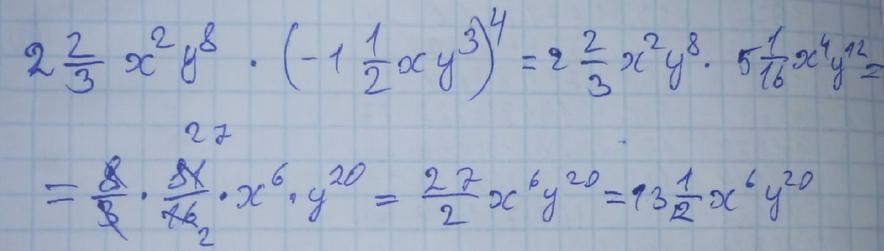 2 2/3 x²y⁸ · (-1 1/2 xy³)⁴ = 2 2/3 x²y⁸ · 5 1/16 x⁴y¹² =
27
= 8/3 · 81/16 · x⁶ · y²⁰ = 27/2 x⁶y²⁰ = 13 1/2 x⁶y²⁰
2